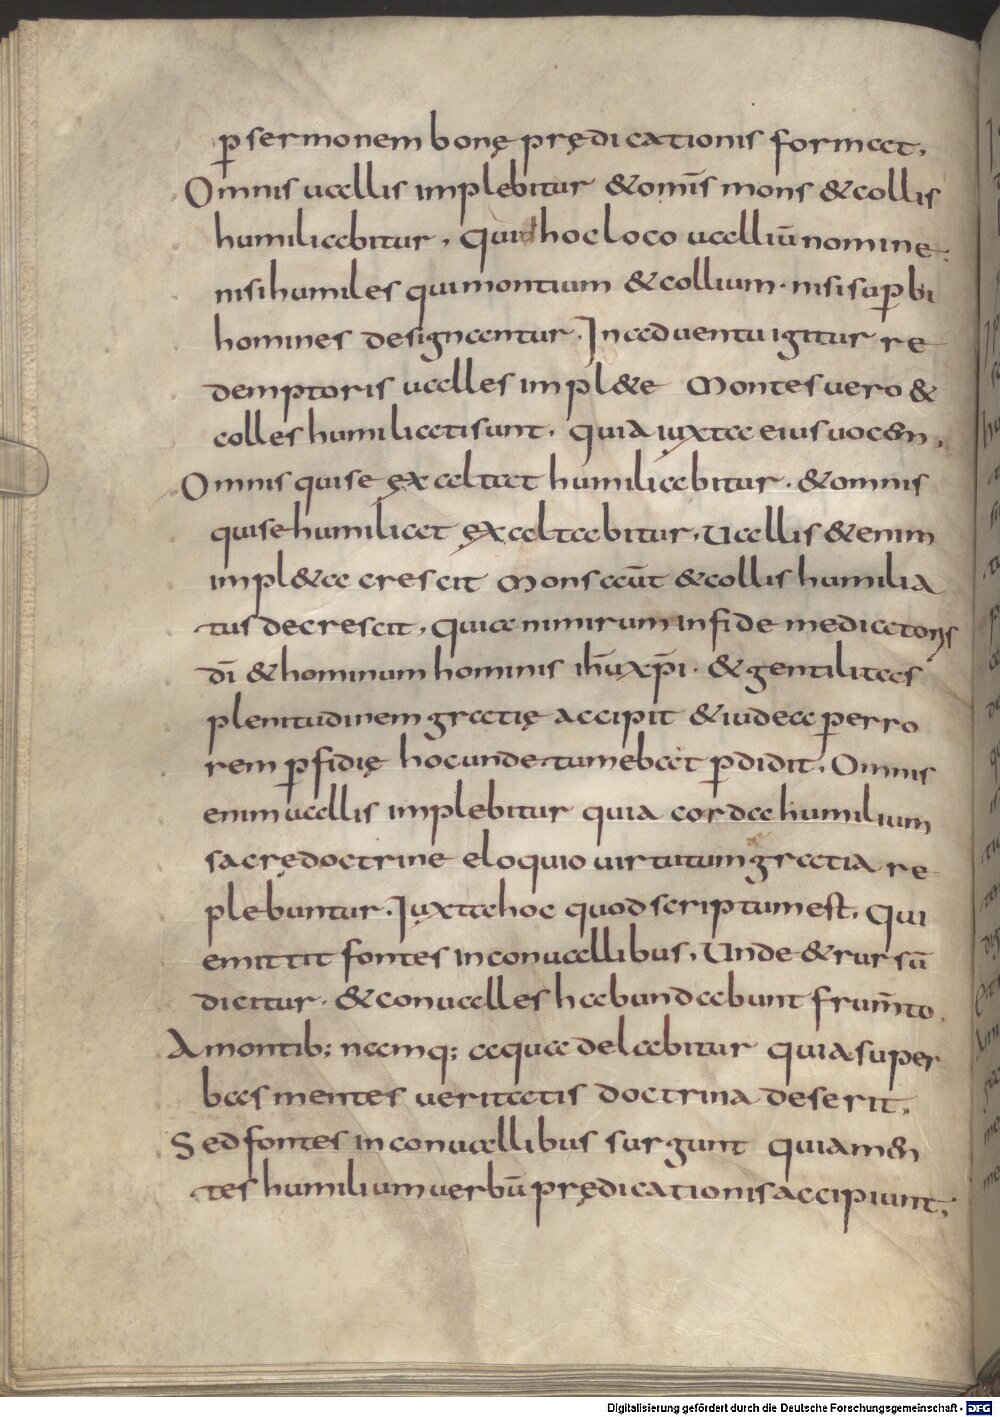 p̄ sermonem bonę prędicationis formaat.
Omnis uallis implebitur & om̄is mons & collis
humiliabitur, Quid hoc loco uallium̄ nomine
nisi humiles qui montium & collium · nisi sup̄bi
homines designantur. In aduentu igitur re
demptoris ualles impl&e Montes uero &
colles humiliati sunt. quia iuxta eius uocem,
Omnis qui se ęxaltat humiliabitur. & omnis
qui se humiliat ęxaltabitur, Uallis & enim
impl&a crescit Mons aūt & collis humilia
tus decrescit, Quia nimirum in fide mediatoris
dī & hominum hominis ih̄u xp̄i. & gentilitas
plenitudinem gratię accipit & iudea p̄ erro
rem p̄fidię hoc unde tumebat p̄didit. Omnis
enim uallis implebitur quia corda humilium
sacrę doctrine eloquio uirtutum gratia re
plebuntur. Iuxta hoc quod scriptum est, Qui
emittit fontes in conuallibus, Unde & rursū
dicitur. & conualles habundabunt frum̄to.
A montib; namq; aqua delabitur quia super
bas mentes ueritatis doctrina deserit.
Sed fontes in conuallibus surgunt quia men
tes humilium uerbū prędicationis accipiunt,
Digitalisierung gefördert durch die Deutsche Forschungsgemeinschaft - DFG